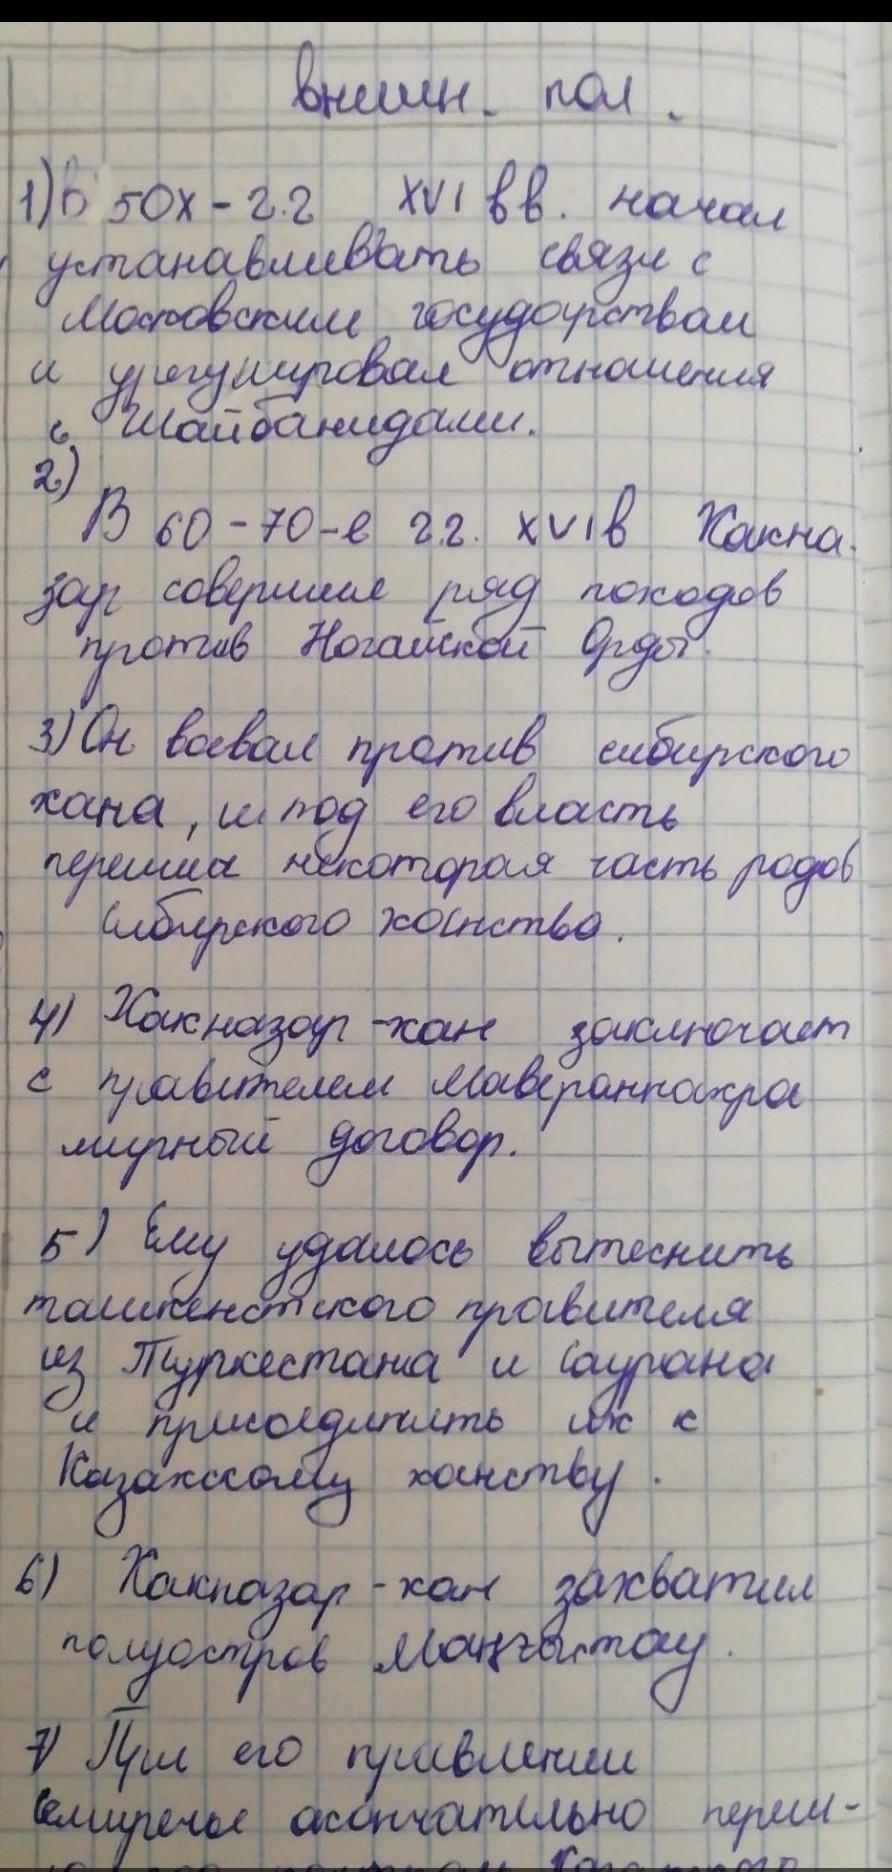 внешн. пол.
1) В 50х-г.г XVI вв. начал
устанавливать связи с
Московским государствам
и урегулировал отношения
с Шайбанидами.
2)
В 60-70-е г.г. XVIв Хакна-
зар совершил ряд походов
против Ногайской Орды.
3) Он воевал против сибирского
хана, и под его власть
перешла некоторая часть родов
Сибирского ханства.
4) Хакназар-хан заключает
с правителем Мавераннахра
мирный договор.
5) Ему удалось вытеснить
ташкенстского правителя
из Туркестана и Саурана
и присоединить их к
Казахскому ханству.
6) Хакназар-хан захватил
полуостров Маңғыстау.
7) При его правлении
Семиречье окончательно переш-